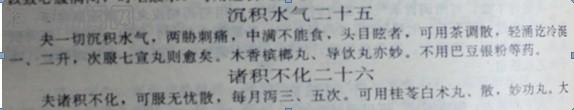 沉积水气二十五
夫一切沉积水气，两胁刺痛，中满不能食，头目眩者，可用茶调散，轻涌讫冷涎
一、二升，次服七宣丸则愈矣。木香槟榔丸、导饮丸亦妙。不用巴豆银粉等药。
诸积不化二十六
夫诸积不化，可服无忧散，每月泻三、五次。可用桂苓白术丸、散，妙功丸。大